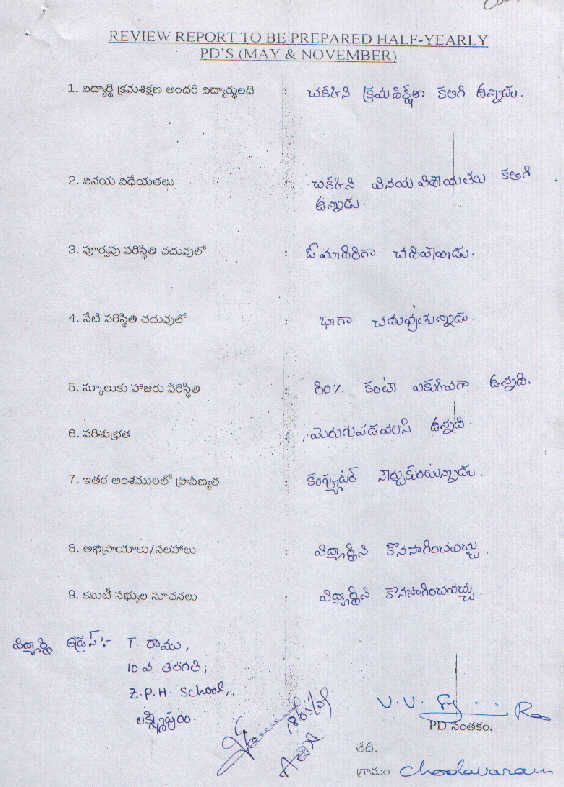 REVIEW REPORT TO BE PREPARED HALF-YEARLY
PD'S (MAY & NOVEMBER)
1. విద్యార్థి క్రమశిక్షణ అందరి విద్యార్థులతో : చక్కని క్రమశిక్షణ కలిగి ఉన్నాడు.
2. వినయ విధేయతలు : చక్కని వినయ విధేయతలు కలిగి
ఉన్నాడు
3. పూర్వపు పరిస్థితి చదువులో : ఓ మాదిరిగా చదివేవాడు.
4. నేటి పరిస్థితి చదువులో : బాగా చదువుతున్నాడు.
5. స్కూలుకు హాజరు పరిస్థితి : 80% కంటే ఎక్కువగా ఉన్నది.
6. పరిశుభ్రత : మెరుగుపడవలసి ఉన్నది
7. ఇతర అంశములలో ప్రావీణ్యత : కంప్యూటర్ నేర్చుకుంటున్నాడు.
8. అభిప్రాయాలు/సలహాలు : విద్యార్థిని కొనసాగించవచ్చు.
9. కమిటీ సభ్యుల సూచనలు : విద్యార్థిని కొనసాగించవచ్చు.
విద్యార్థి అడ్రస్:- T. రాము,
10వ తరగతి,
Z.P.H. School,
లక్ష్మీపురం.
V.V. Rao
PD సంతకం.
తేది.
గ్రామం Choolavaram